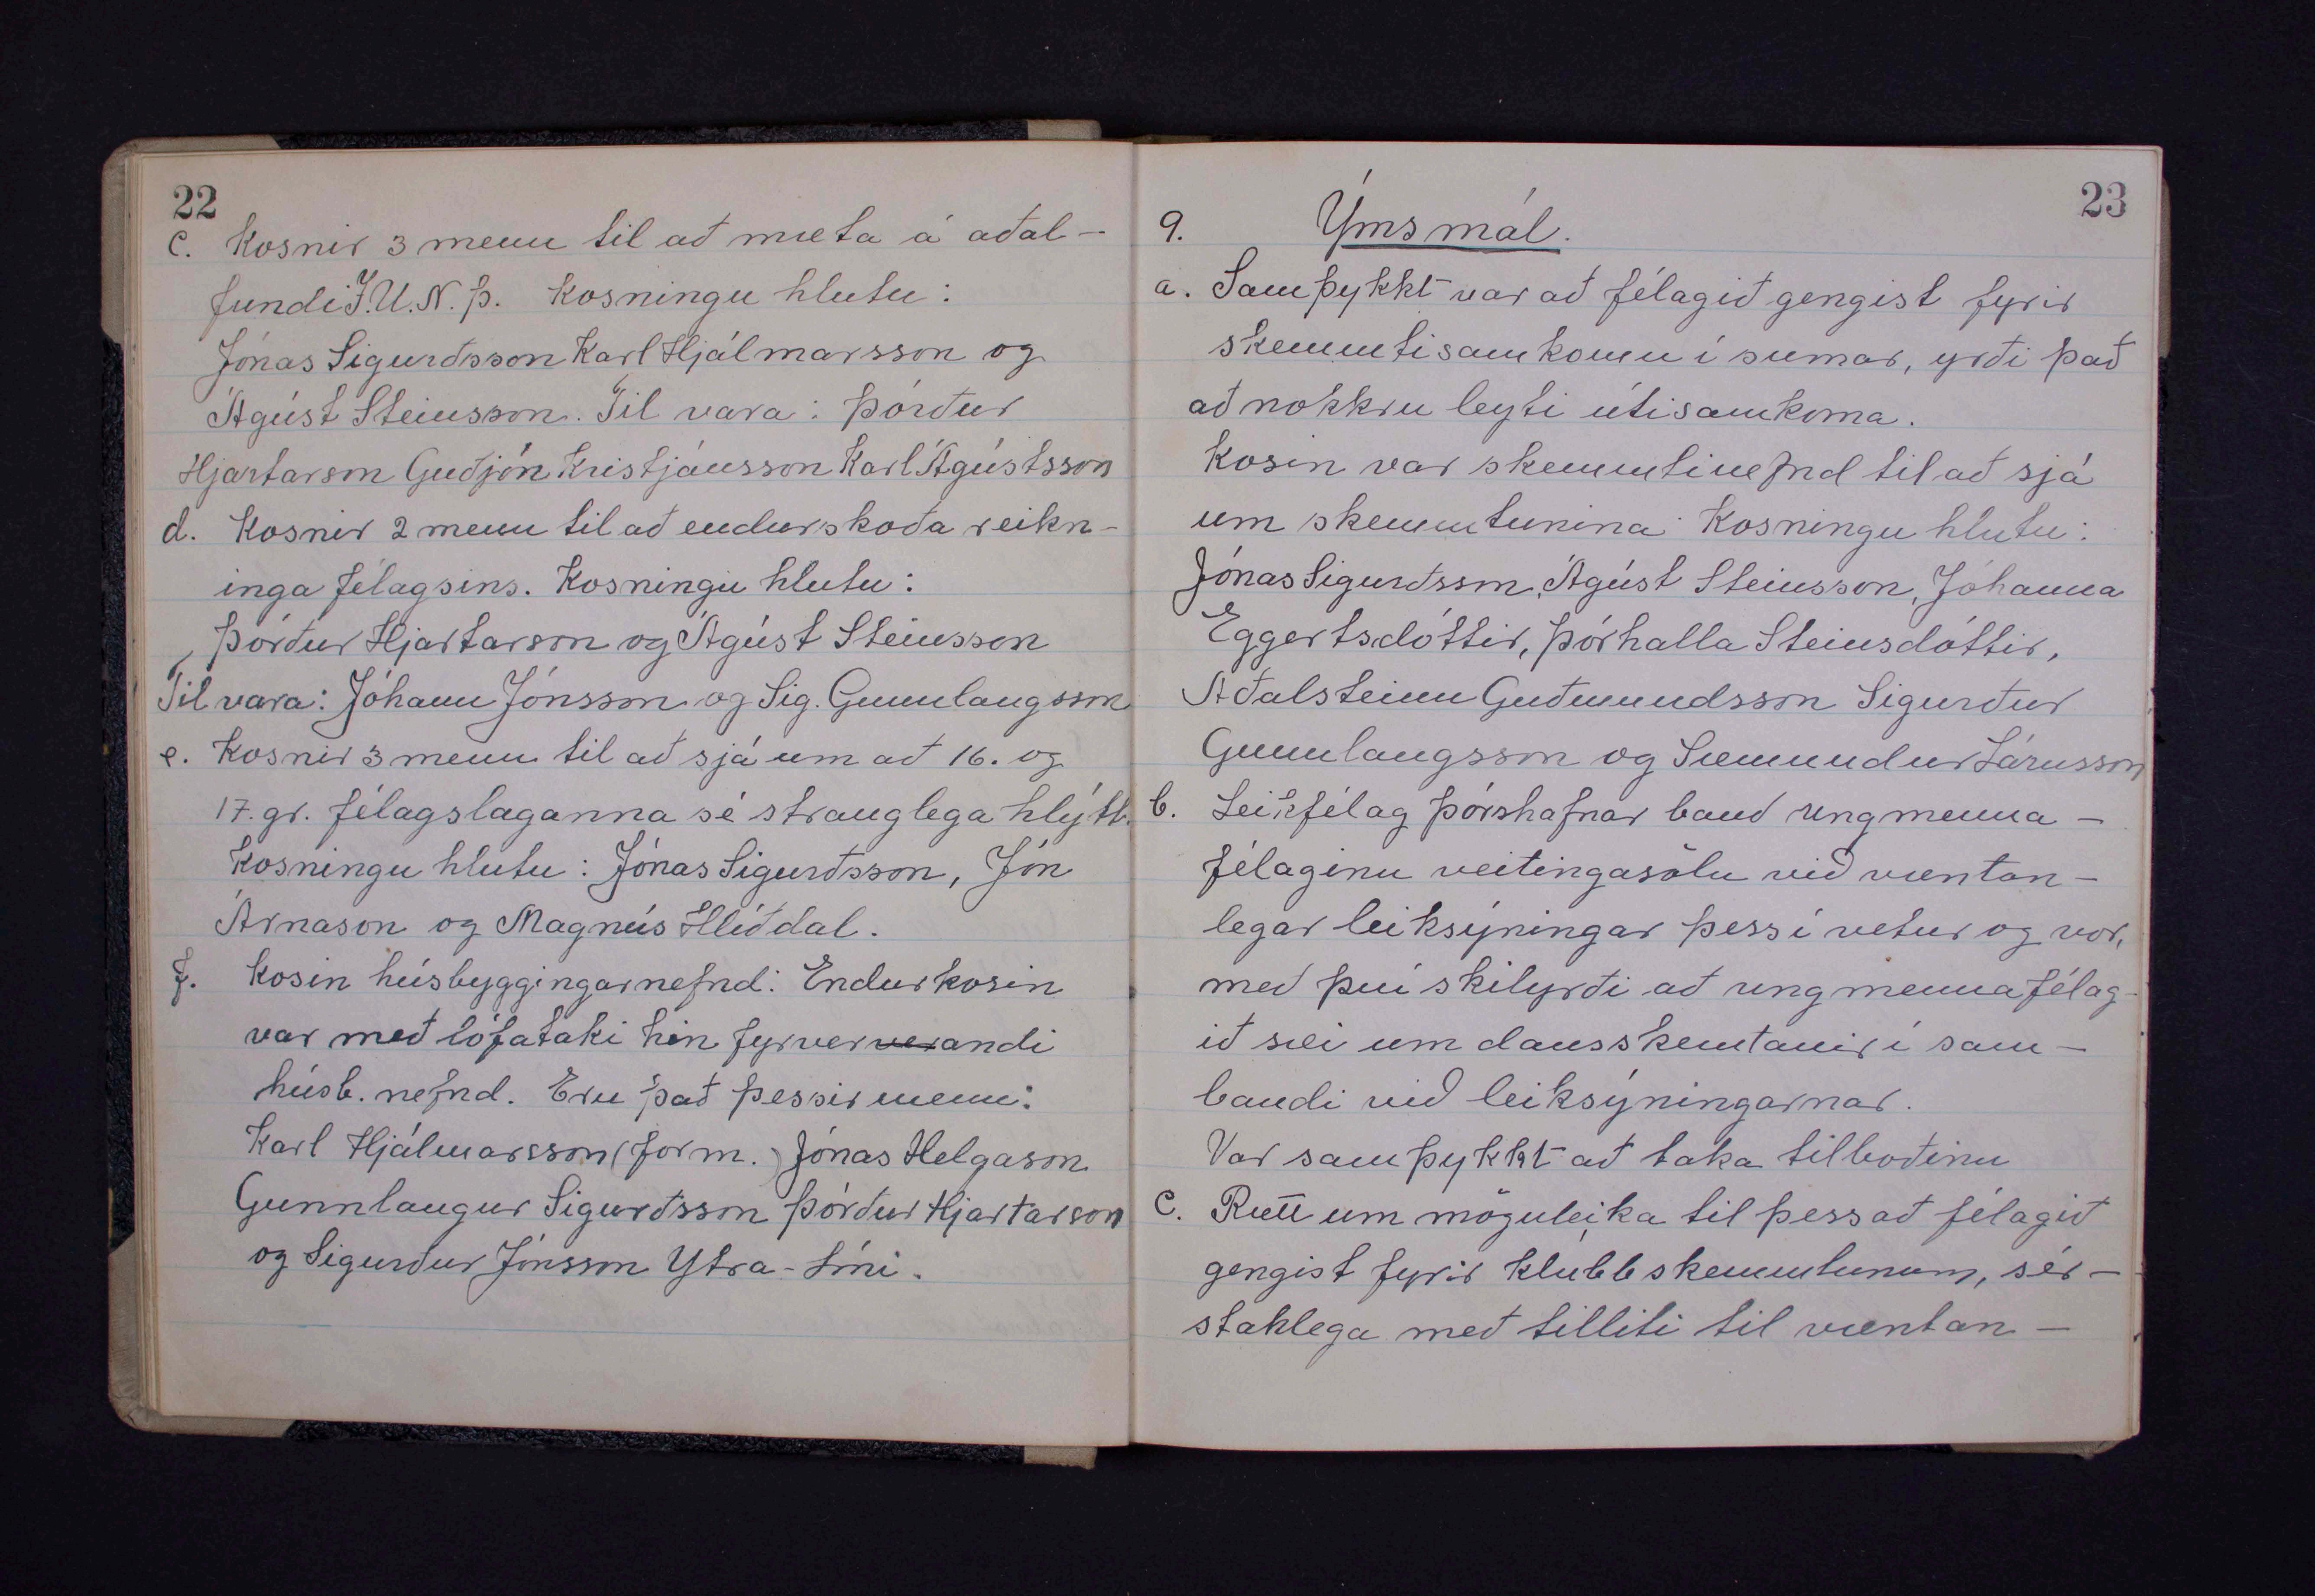 22
c. Kosnir 3 menn til að mæta á aðal-
fundi Í.U.N.Þ. Kosningu hlutu:
Jónas Sigurðsson Karl Hjálmarsson og
Ágúst Steinsson. Til vara: Þórður
Hjartarson Guðjón Kristjánsson Karl Ágústsson
d. Kosnir 2 menn til að endurskoða reikn-
inga félagsins. Kosningu hlutu:
Þórður Hjartarson og Ágúst Steinsson
Til vara: Jóhann Jónsson og Sig. Gunnlaugsson
e. Kosnir 3 menn til að sjá um að 16. og
17. gr. félagslaganna sé stranglega hlýtt.
Kosningu hlutu: Jónas Sigurðsson, Jón
Árnason og Magnús Hlíðdal.
f. Kosin húsbyggingarnefnd: Endurkosin
var með lófataki hin fyrververandi
húsb. nefnd. Eru það þessir menn:
Karl Hjálmarsson (form.) Jónas Helgason
Gunnlaugur Sigurðsson Þórður Hjartarson
og Sigurður Jónsson Ytra-Lóni.
23
9. Ýms mál.
a. Samþykkt var að félagið gengist fyrir
skemmtisamkomu í sumar, yrði það
að nokkru leyti útisamkoma.
Kosin var skemmtinefnd til að sjá
um skemmtunina Kosningu hlutu:
Jónas Sigurðsson, Ágúst Steinsson, Jóhanna
Eggertsdóttir, Þórhalla Steinsdóttir,
Aðalsteinn Guðmundsson Sigurður
Gunnlaugsson og Sæmundur Lárusson
b. Leikfélag Þórshafnar bauð ungmenna-
félaginu veitingasölu við væntan-
legar leiksýningar þess í vetur og vor,
með því skilyrði að ungmennafélag-
ið sæi um dansskemtanir í sam-
bandi við leiksýningarnar.
Var samþykkt að taka tilboðinu
c. Rætt um möguleika til þess að félagið
gengist fyrir klubbskemmtunum, sér-
staklega með tilliti til væntan-